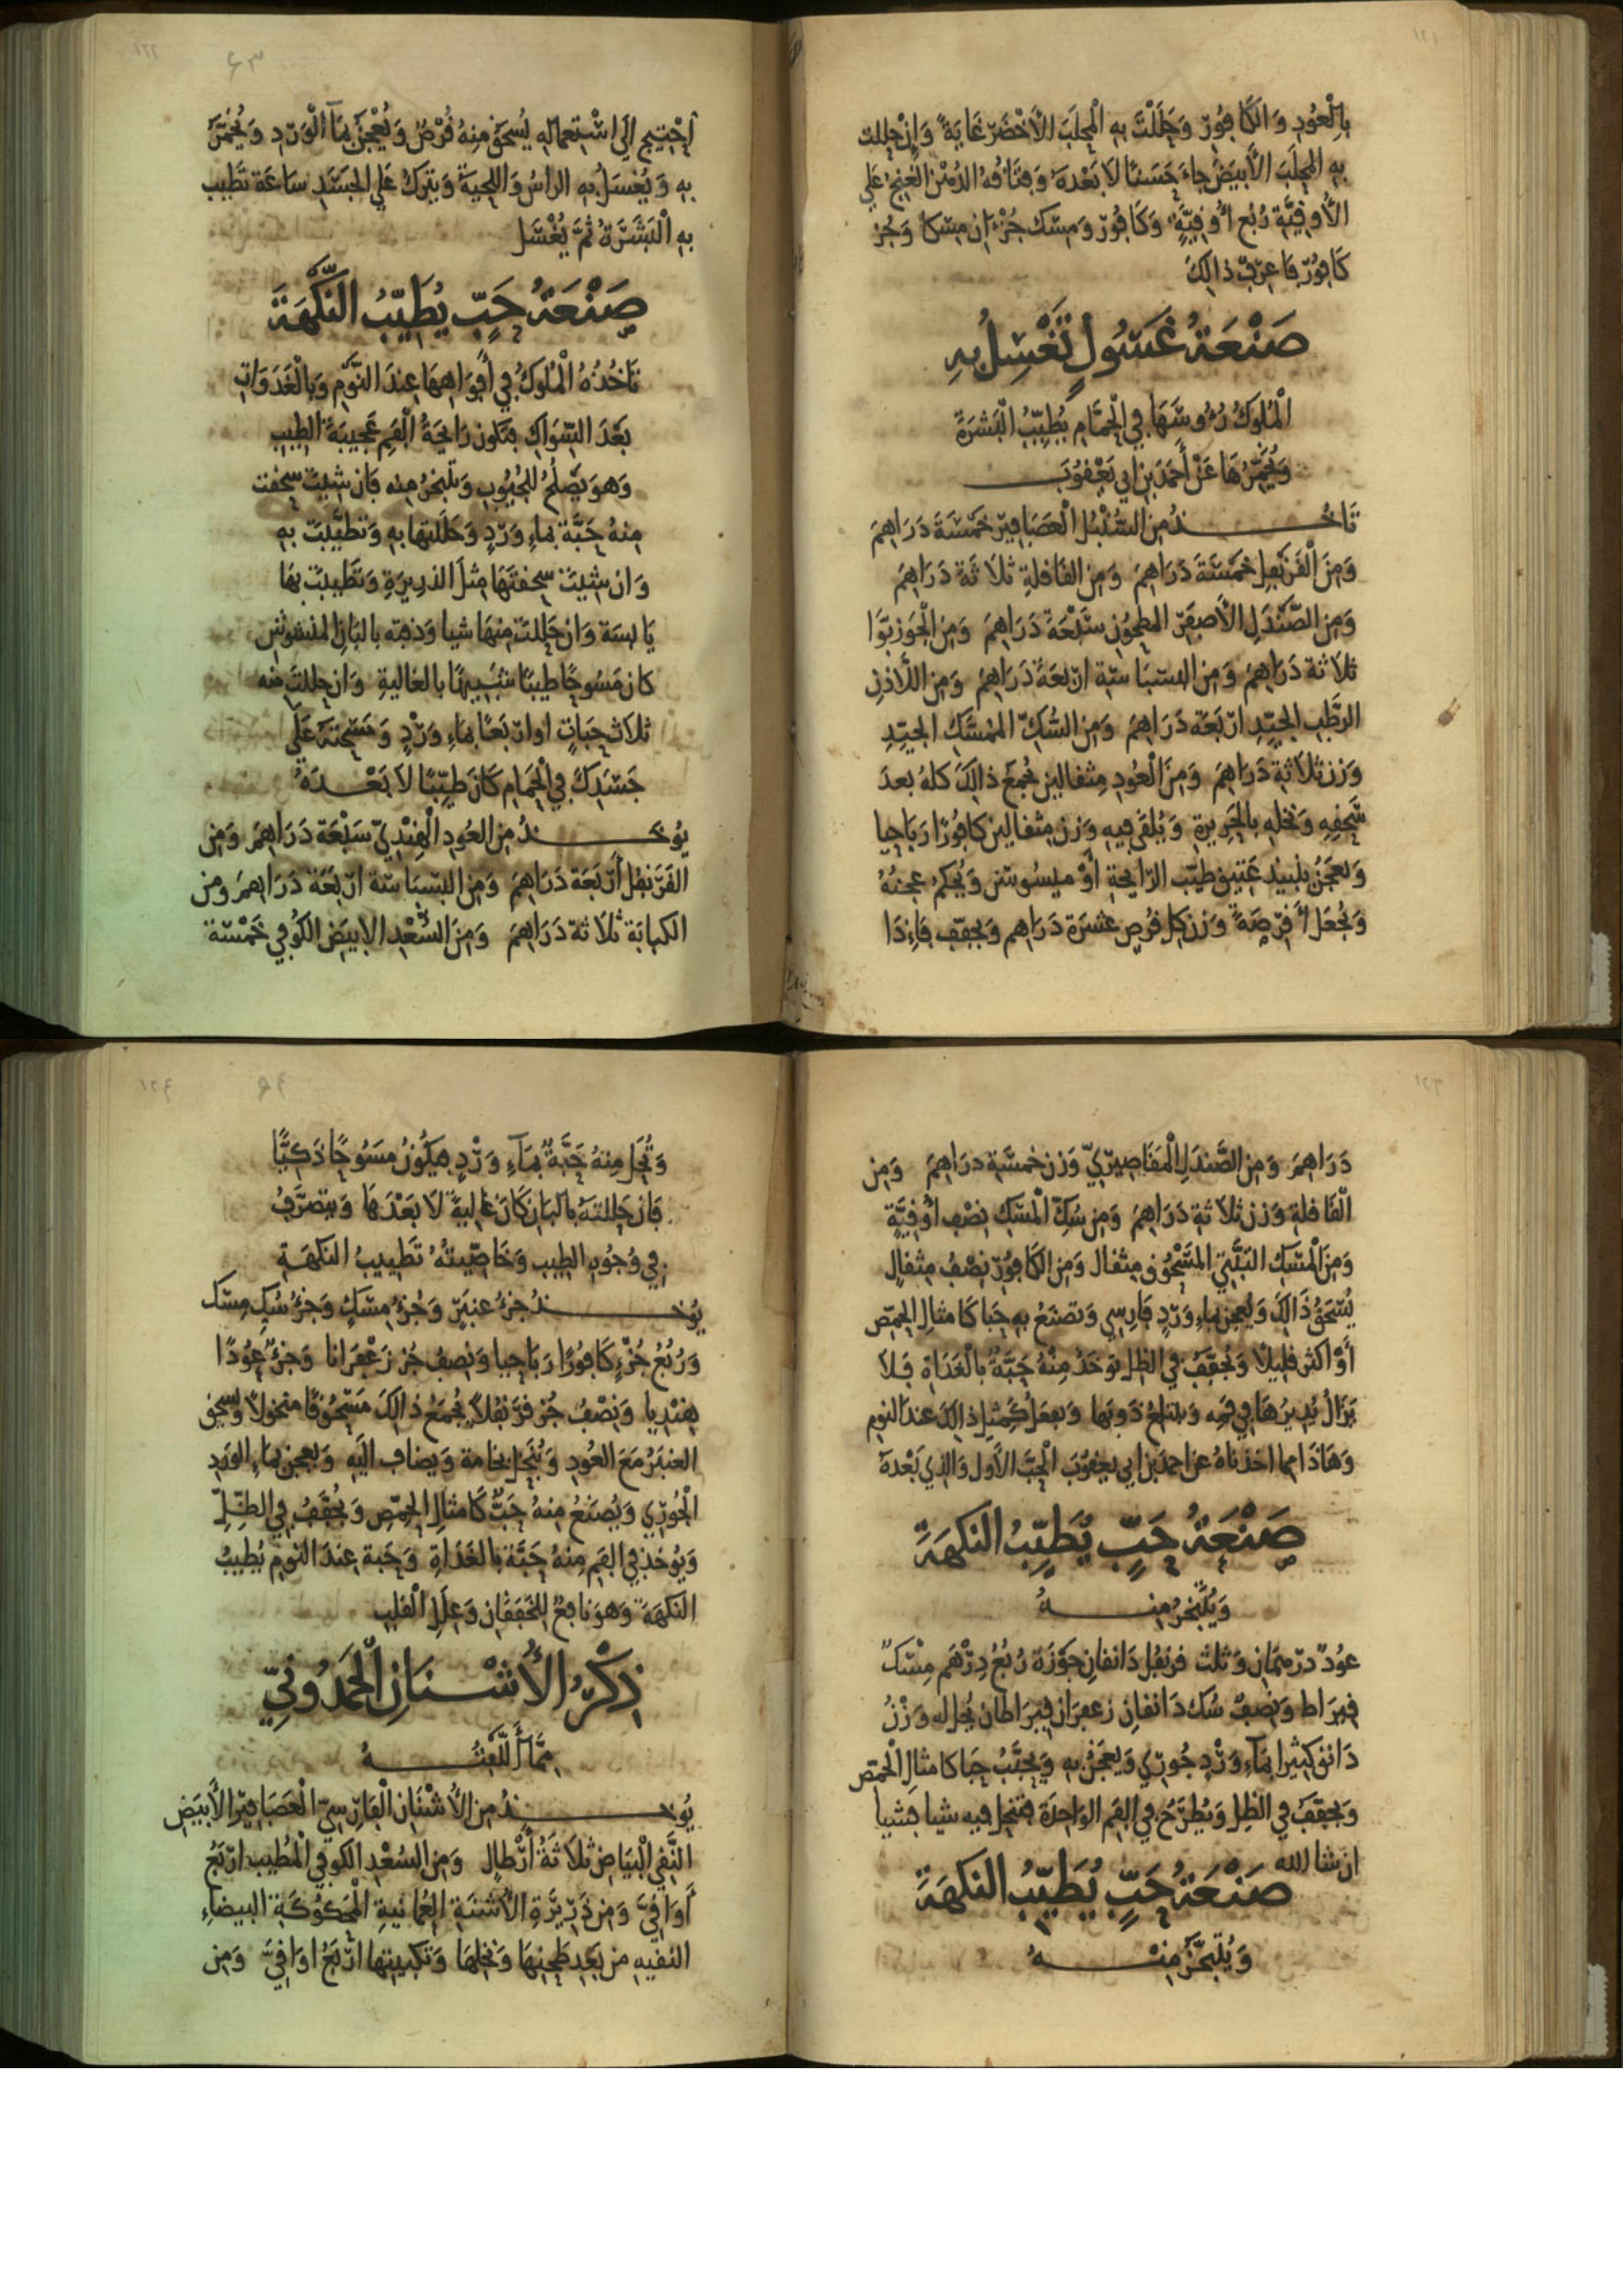 ١٢١
بِالْعُودِ وَالْكَافُورِ وَحَلَلْتَ بِهِ الْمَحْلَبَ الْأَخْضَرَ غَايَةً وَإِنْ حللت
بِهِ المحلَبَ الأَبيَضَ جاءَ حَسَنًا لاَ بَعْدَهُ وَفتَاقُهُ الدُهْن العنج عَلي
الأُوقِيَّة رُبُع أُوقِيَّةٍ وَكَافُور وَمسْك جُزْءان مِسْكا وَجُز
كَافُورٍ فَاعرِفْ ذالِكَ
صَنْعَةُ غَسُولٍ تَغْسِلُ بِهِ
الْمُلوكُ رُءُوسَهَا فِي الْحَمَّامِ يُطَيِّبُ الْبَشرَةَ
وَيُخَمِّرُهَا عَنْ أَحْمَدَ بنِ ابي يَعْقُوبَ
تَاخُذُ مِنَ السُّنْبُل الْعَصَافِيرِ خَمْسَةَ دَرَاهِمَ
وَمِنَ الْقَرَنْفل خَمْسَةَ دَرَاهِمَ وَمِنَ القَاقلةِ ثلاَثةَ دَرَاهِمَ
وَمِنَ الصَّنْدَلِ الأَصفَرِ المطحُون سَبْعَةَ دَرَاهِمَ وَمِنَ الْجَوزبَوَّا
ثلاَثة دَرَاهِمَ وَمِن البسْبَاسَة ارْبعَةَ دَرَاهِمَ وَمِنَ اللَّاذنِ
الرطَبِ الجَيِّدِ ارْبَعَة دَرَاهِمَ وَمِنَ السُّكِّ الممَسَّكِ الجيِّدِ
وَزن ثلاَثةِ دَرَاهِمَ وَمِنَ الْعُودِ مِثقالين يُجمَعُ ذالِكَ كلهُ بعدَ
سَحقِهِ وَنَخلهِ بالحَرِيرَةِ وَيُلقَى فِيهِ وَزن مِثقالين كَافُورًا رَبَاحِيا
وَيعجَنُ بِنَبيذ عَتِيق طيّب الرَّايحةِ أَوْ ميسُوسَن وَيُحكمُ عجنُهُ
وَيُجعَل أَقْرِصَةً وَزن كل قُرص عَشرَة دَرَاهِم وَيجفّف فَإِذَا
١٢٢
٦٣
احْتِيجَ الَى اسْتِعمَالِهِ يُسحَقُ مِنهُ قُرْصٌ وَيُعْجَنُ بِمَآ الْوَرْدِ وَيُخَمَّرُ
بِهِ وَيُغسَلُ بِهِ الراسُ وَاللحيَةُ وَيترَكُ عَلَي الجَسَدِ سَاعَة تَطَيِيب
بِهِ الْبَشَرَةُ ثُمَّ يُغْسَل
صَنْعَةُ حَبٍّ يُطَيِّبُ النَّكْهَةَ
تَاخُذُهُ الْمُلوكُ فِي أَفْوَاهِهَا عِندَ النَّوْمِ وَبالْغَدَوَاتِ
بَعْدَ السِّوَاكِ فتكُون رَايحَةُ الْفَمِ عَجِيبَةَ الطِيبِ
وَهوَ يَصْلُحُ للجُيُوبِ وَيتَبخرُ مِنه فَان شِيتَ سحقت
مِنهُ حَبَّة بماءِ وَرْدٍ وَحَللتهَا بِهِ وَتَطَيَّبتَ بِهِ
وَان شِيتَ سحقتَهَا مِثلَ الذرِيرَةِ وَتَطَيبتَ بِهَا
يَابسَة وَان حَللتَ مِنهَا شيا وَذبته بالبَانِ المنشُوشِ
كانَ مَسُوحًا طيبًا شَبيهًا بالغاليةِ وَان حللتَ منه
ثلاَث حَبَاتٍ اوارْبَعًا بِمَاءِ وَرْدٍ وَمَسَحْتَهُ عَلَى
جَسَدِكَ فِي الْحَمَامِ كَانَ طَيِّبًا لاَ بَعْدَهُ
يُوخَذُ مِنَ العُودِ الْهِنْدِيّ سَبْعَة دَرَاهِمَ وَمِن
القَرَنفل أَرْبَعَة دَرَاهِمَ وَمِنَ البَسْبَاسَة ارْبَعَة دَرَاهِمَ وَمن
الكبابَة ثلاَثة دَرَاهِمَ وَمِنَ السُّعْدِ الابيَض الكُوفِي خَمْسَة
١٢٣
دَرَاهِمَ وَمِنَ الصَّندَلِ الْمَقَاصِيرِيّ وَزن خمسَة درَاهِمَ وَمِن
الْقَاقلةِ وَزن ثلاَثةِ دَرَاهِمَ وَمِن سُكِّ الْمسْكِ نِصْف أُوقِيَّةٍ
وَمِنَ الْمَسْكِ التبَّتِي المَسْحُوق مِثقال وَمِنَ الكَافُورِ نِصْفُ مِثقَالٍ
يُسْحَقُ ذَالِكَ وَيُعجن بماءِ وَرْدٍ فَارِسِي وَتصْنَعُ بِهِ حَبا كَامثالِ الحِمّصِ
أَوْ اكثر قليلاً وَيُجَفّفُ فِي الظل يوخَذُ مِنْهُ حَبَّةٌ بالْغَدَاةِ فَلاَ
يَزَالُ يُدِيرُهَا فِي فَمِهِ وَيبتلعُ ذَوبَهَا وَيفعَلُ كَمِثلِ ذالكَ عندَ النومِ
وَهَاذَا مما اخذناهُ عن احمدَ بن ابي يعقُوبَ الْحَبَّ الأَول وَالذِي بَعْدهُ
صَنْعَةُ حَبٍّ يُطَيِّبُ النكهَةَ
وَيُتَبَخرُ مِنهُ
عوُدٌ درْهمَان وَثلث قرنفل دَانقان جَوْزَة رُبُعُ دِرْهَم مِسْكٌ
قيرَاط وَنِصفٌ سُك دَانقانِ زعفرَان قيرَاطان يُحل له وَزْنُ
دَانق كثيرا بِمآءِ وَرْدٍ جُورِي وَيعجَنُ بِهِ وَيحَبَّبُ حَبا كامثالِ الْحمّصِ
وَيجفّفُ فِي الظلِ وَيُطْرَحُ فِي الفَم الوَاحِدَة فتنحل فيه شيا فشيا
ان شا الله
صَنْعَةُ حَبٍّ يُطَيِّبُ النكهَةَ
وَيُتبَخَّرُ مِنهُ
١٢٤
٦٤
وَتُحَل مِنهُ حَبَّةٌ بِمَآءِ وَرْدٍ فيَكُونُ مَسُوحًا ذَكيًّا
فَان حَللتَهُ بالبَانِ كَانَ غاليةً لاَ بَعْدَهَا وَيتصَرَّفُ
فِي وُجُوهِ الطِيبِ وَخَاصِّيتُهُ تَطيِيبُ النكهَةِ
يُوخَذُ جزءُ عنبَرٍ وَجُزءُ مسْكٍ وَجُزءُ سُكِ مِسْك
وَرُبُعُ جُزْءٍ كَافُورًا رَبَاحِيا وَنِصفُ جُز زَعْفَرَانا وَجُزءٌ عُودًا
هِنْدِيا وَنِصْفُ جُز قَرَنْفُلاً يُجْمَعُ ذالكَ مَسْحُوقًا منخولاً وَيُسحق
العنبَرُ مَعَ العُودِ وَيُنْخَلُ بخامة وَيضاف اليه وَيعجن بماءِ الوَردِ
الْجُورِي وَيُصنَعُ مِنهُ حَبٌّ كَامثالِ الحِمّصِ وَيُجَفّفُ فِي الظِلِّ
وَيُوخذ فِي الفَمِ مِنهُ حَبَّة بالغَدَاةِ وَحَبة عِندَ النومِ يُطيبُ
النكهَةَ وَهوَ نافعٌ للخَفَقَانِ وَعِلَلِ الْقلبِ
ذِكْرُ الأُشْنَانِ الْحَمْدُونِيّ
مِمَّا أَلَّفتُهُ
يُوخَذُ مِنَ الأُشْنَانِ الْفَارِسِيّ الْعَصَافِيرِ الأَبْيَضِ
النَّقِي الْبَيَاض ثلاَثَةُ أَرْطالٍ وَمِنَ السُعْدِ الكُوفي الْمُطيب ارْبَعُ
أَوَاقِيَّ وَمِن ذَرِيرَةِ الأُشنَةِ العُمَانيةِ الْمَحكُوكَةِ البيضَاءِ
النقيه من بَعدِ طَحِنِهَا وَنَخلهَا وَتَكبِيتها ارْبَعُ اوَاقيَّ وَمِن